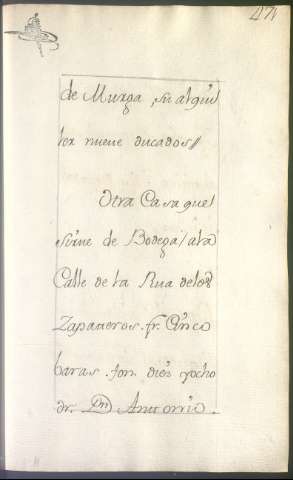 474
de Murga, su alqui
ler nueve ducados //
Otra Casa que
sirve de Bodega / a la
Calle de la Rua de los
Zapatteros. fr. Cinco
baras. fon. diez yocho
dr. Dn Anttonio.